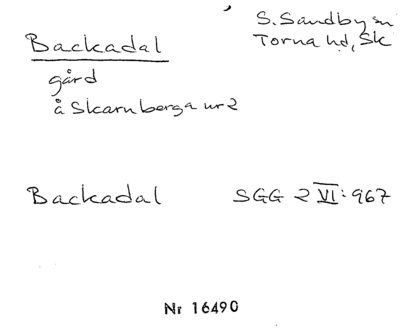 Backadal
S. Sandby sn
Torna hd, Sk
gård
å Skarnberga nr 2
Backadal
SGG 2 VI: 967
Nr 16490